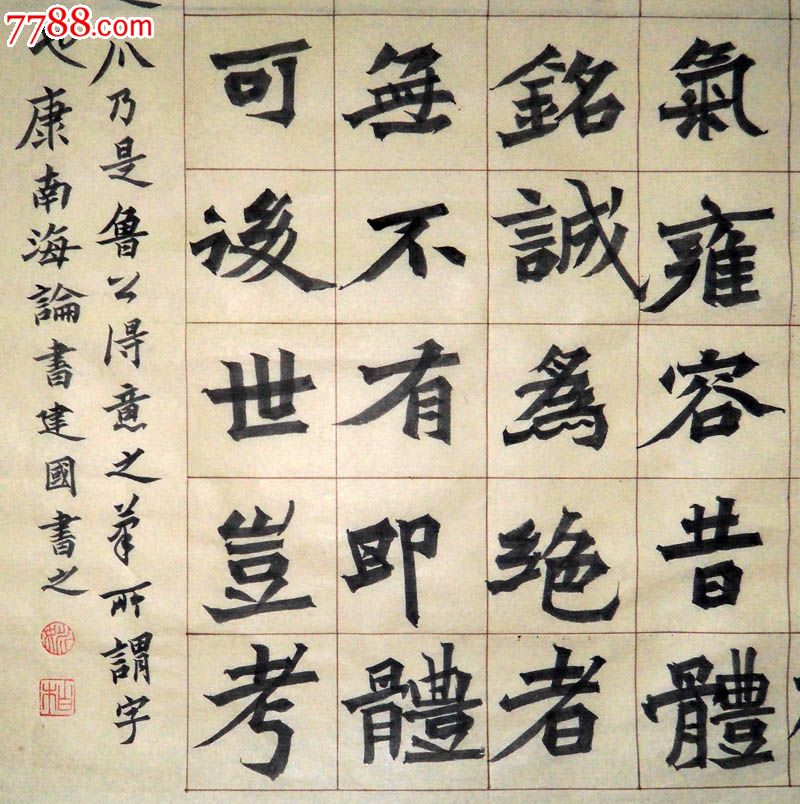 7788.com
氣雍容昔體
銘誠為絶者
無不有即體
可後世豈考
爪乃是魯公得意之筆所謂字
也康南海論書建國書之